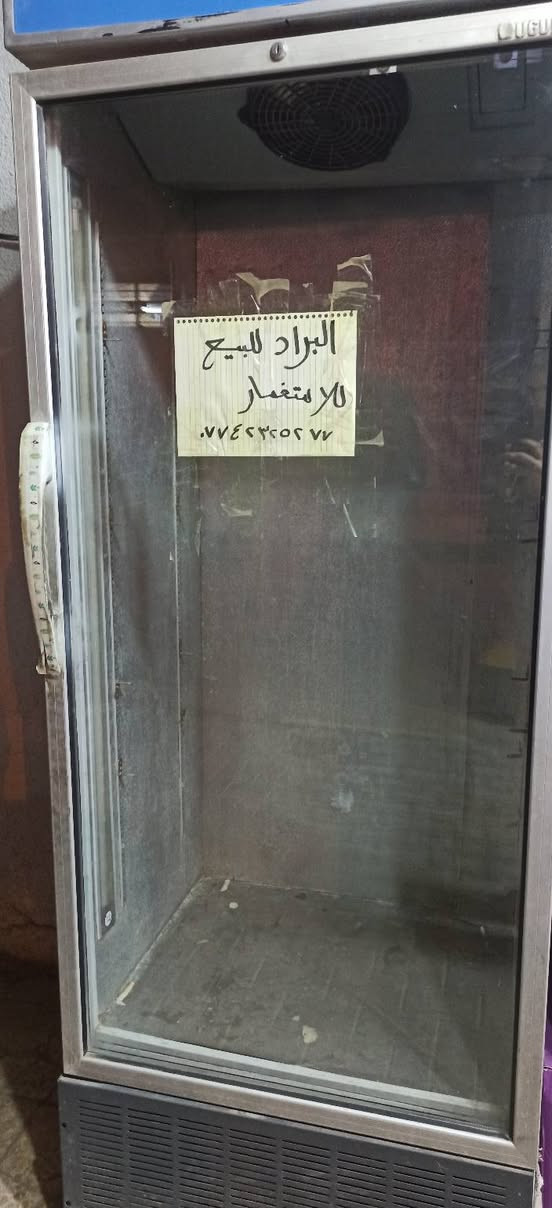 UGU
البراد للبيع
للاستفسار
٠٧٧٤٢٣٢٥٢٧٧